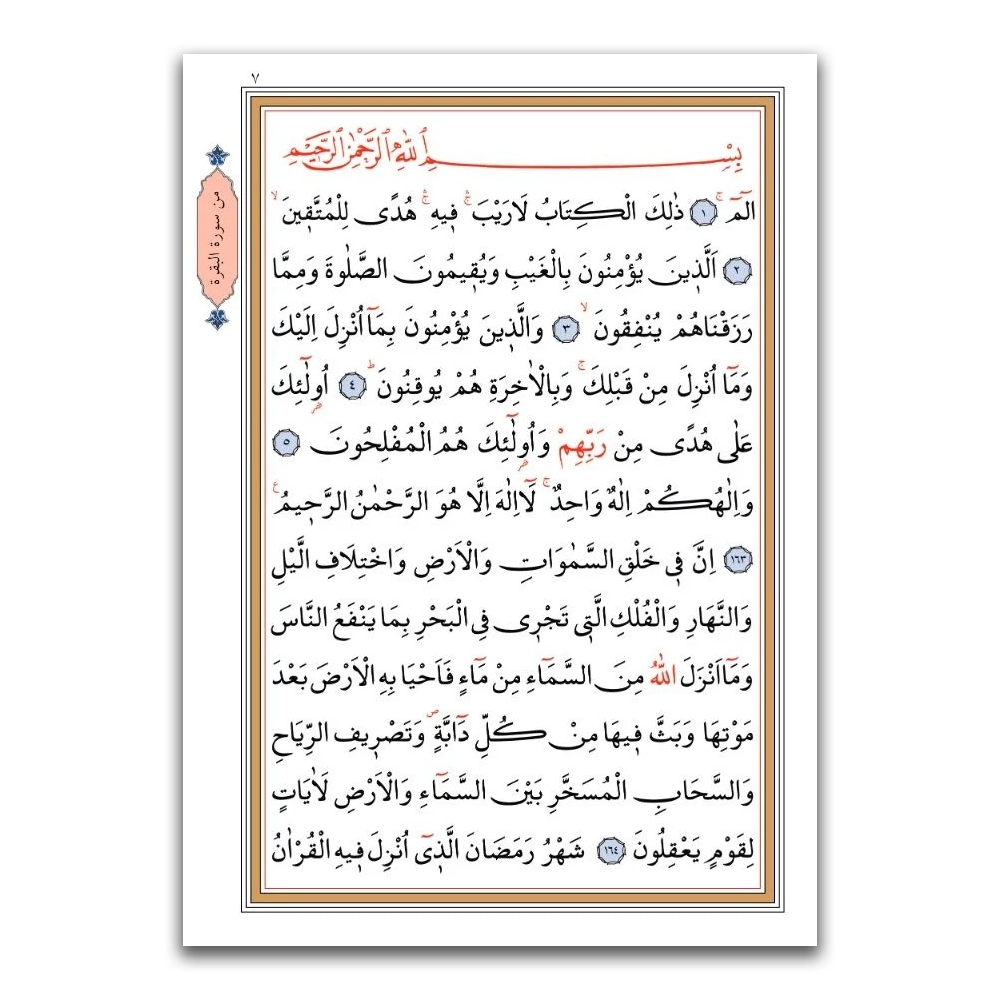 ٧
من سورة البقرة
بِسْمِ اللّٰهِ الرَّحْمٰنِ الرَّحٖيمِ
الٓمٓ ۚ ﴿١﴾ ذٰلِكَ الْكِتَابُ لَارَيْبَ ۛ فٖيهِ ۛ هُدًى لِلْمُتَّقٖينَ ۙ
﴿٢﴾ اَلَّذٖينَ يُؤْمِنُونَ بِالْغَيْبِ وَيُقٖيمُونَ الصَّلٰوةَ وَمِمَّا
رَزَقْنَاهُمْ يُنْفِقُونَ ۙ ﴿٣﴾ وَالَّذٖينَ يُؤْمِنُونَ بِمَٓا اُنْزِلَ اِلَيْكَ
وَمَٓا اُنْزِلَ مِنْ قَبْلِكَ ۚ وَبِالْاٰخِرَةِ هُمْ يُوقِنُونَ ؕ ﴿٤﴾ اُولٰٓئِكَ
عَلٰى هُدًى مِنْ رَبِّهِمْ وَاُولٰٓئِكَ هُمُ الْمُفْلِحُونَ ﴿٥﴾
وَاِلٰهُكُمْ اِلٰهٌ وَاحِدٌ ۚ لَٓا اِلٰهَ اِلَّا هُوَ الرَّحْمٰنُ الرَّحٖيمُ ࣖ
﴿١٦٣﴾ اِنَّ فٖى خَلْقِ السَّمٰوَاتِ وَالْاَرْضِ وَاخْتِلَافِ الَّيْلِ
وَالنَّهَارِ وَالْفُلْكِ الَّتٖى تَجْرٖى فِى الْبَحْرِ بِمَا يَنْفَعُ النَّاسَ
وَمَٓا اَنْزَلَ اللّٰهُ مِنَ السَّمَٓاءِ مِنْ مَٓاءٍ فَاَحْيَا بِهِ الْاَرْضَ بَعْدَ
مَوْتِهَا وَبَثَّ فٖيهَا مِنْ كُلِّ دَٓابَّةٍ ࣕ وَتَصْرٖيفِ الرِّيَاحِ
وَالسَّحَابِ الْمُسَخَّرِ بَيْنَ السَّمَٓاءِ وَالْاَرْضِ لَاٰيَاتٍ
لِقَوْمٍ يَعْقِلُونَ ﴿١٦٤﴾ شَهْرُ رَمَضَانَ الَّذٖٓى اُنْزِلَ فٖيهِ الْقُرْاٰنُ